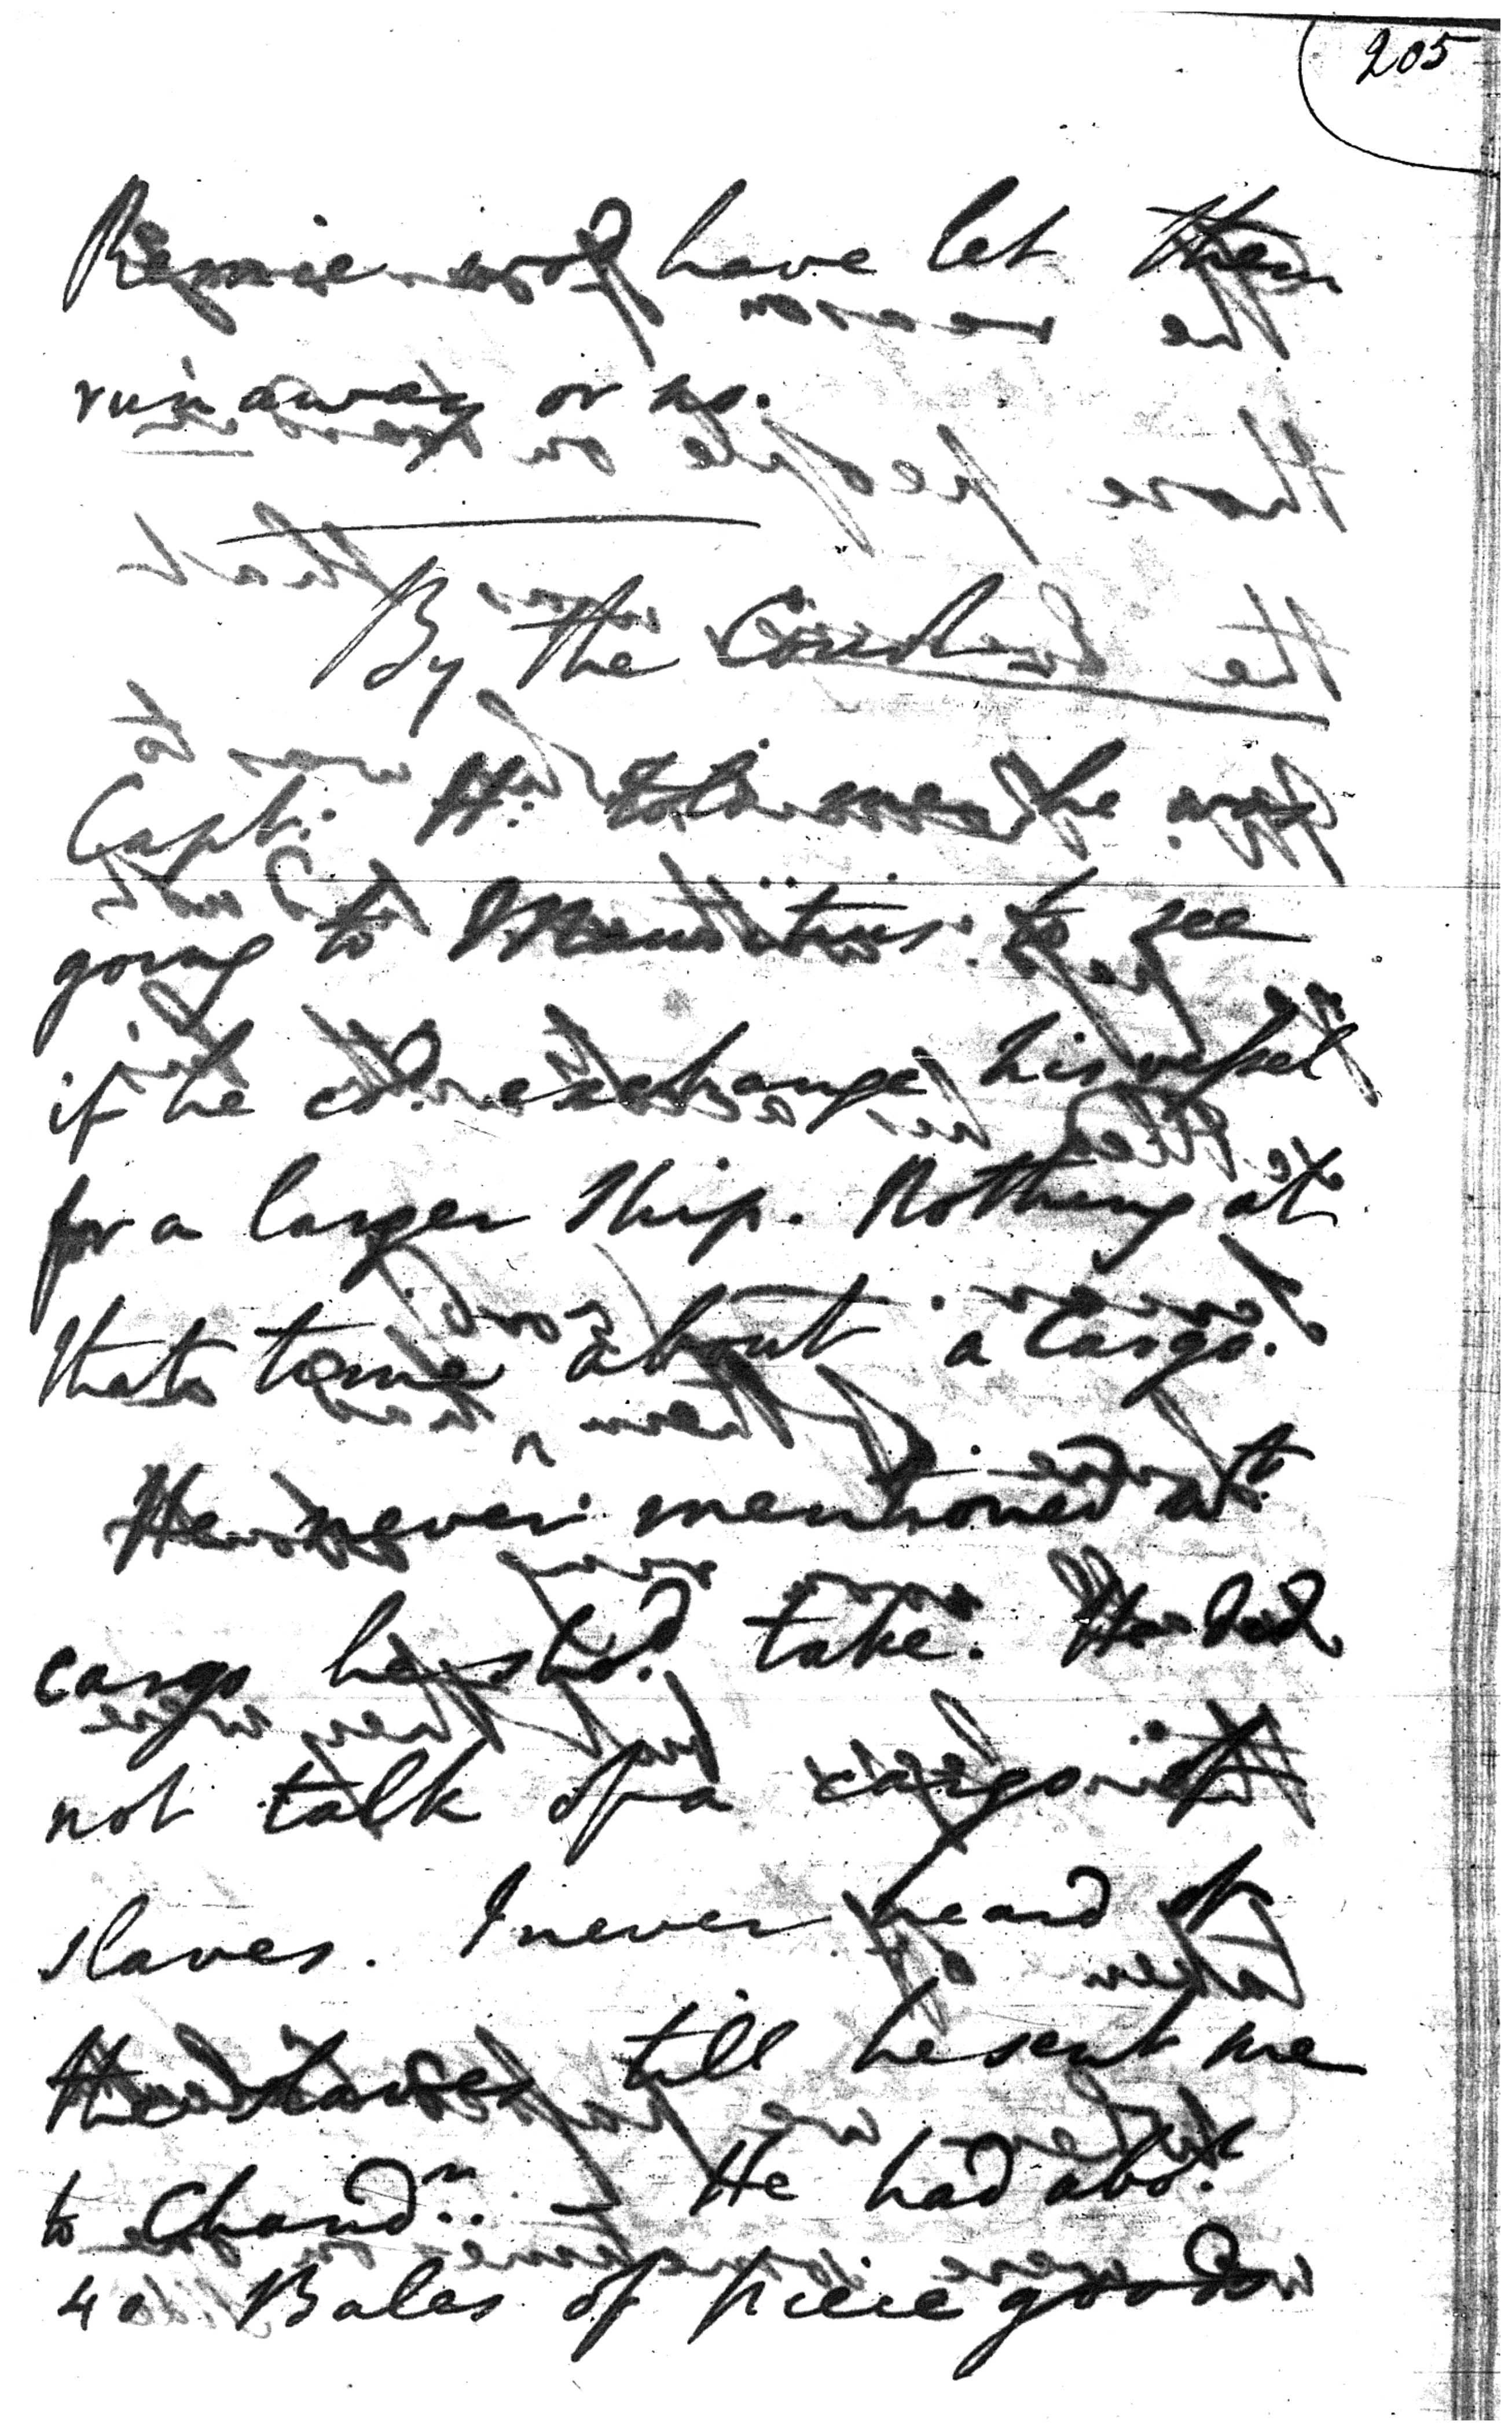 205
have let them
run away or no.
By the Court
Capt. H: told me he was
going to Mauritius to see
if he cd. exchange his vessel
for a larger Ship. Nothing at
that time about a Cargo.
He never mentioned wt.
cargo he shd. take. He did
not talk of a cargo of
slaves. I never heard of
the slaves till he sent me
to Chandn. – He had abt.
40 Bales of piece goods